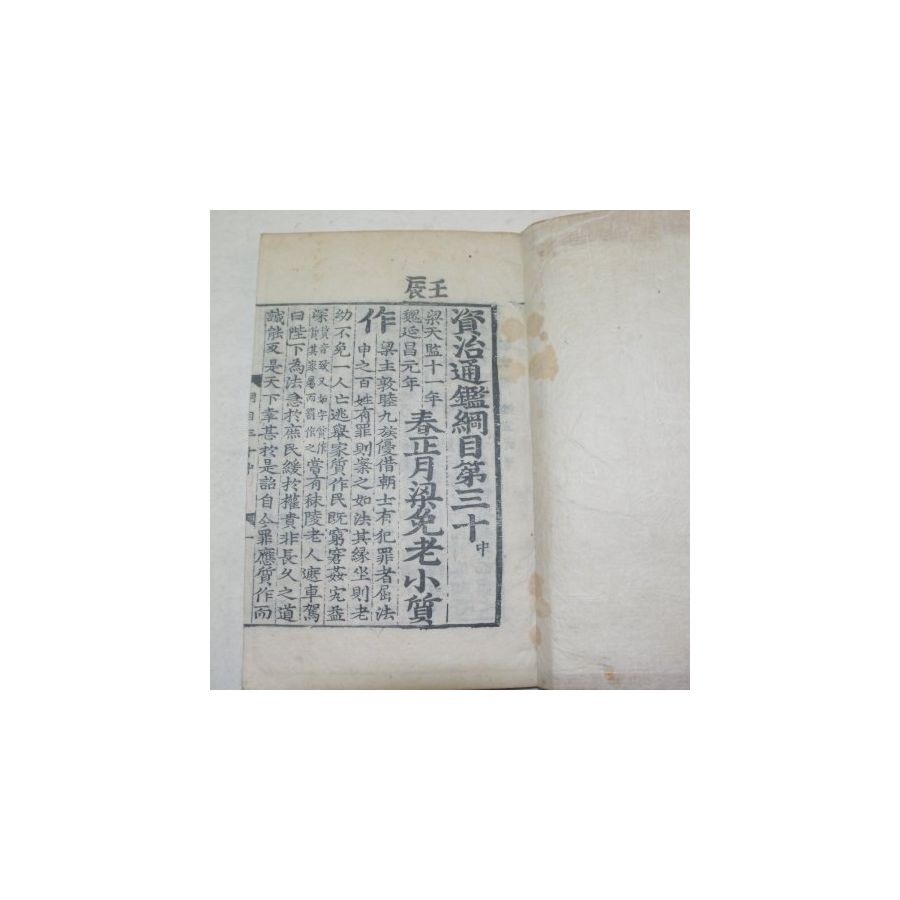 壬辰
資治通鑑綱目第三十中
梁天監十一年
魏延昌元年
春正月梁免老小質
作
梁主敦睦九族優借朝士有犯罪者屈法
申之百姓有罪則案之如法其緣坐則老
幼不免一人亡逃舉家質作民既窮窘姦宄益
深
質音致又如字質作
質其家屬而罰作之
嘗有秣陵老人遮車駕
曰陛下為法急於庶民緩於權貴非長久之道
誠能反是天下幸甚於是詔自今罪應質作而